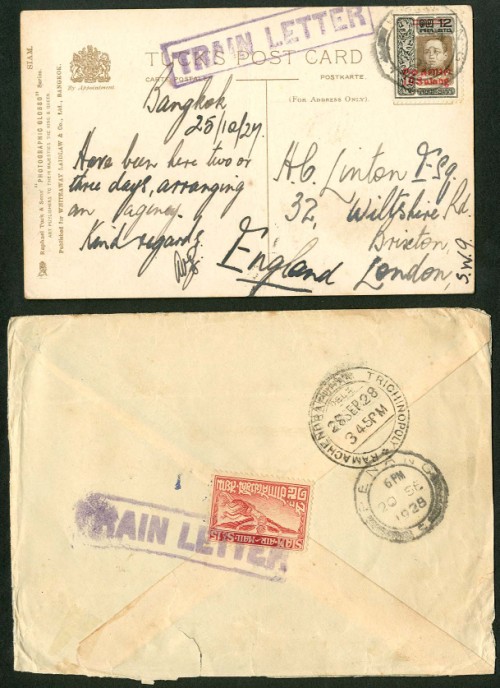 TRAIN LETTER
TUCK'S POST CARD
CARTE POSTALE
POSTKARTE.
(FOR ADDRESS ONLY).
By Appointment.
SIAM.
Raphael Tuck & Sons' "PHOTOGRAPHIC BLOSSO" Series.
ART PUBLISHERS TO THEIR MAJESTIES THE KING & QUEEN.
Published for WHITEAWAY LAIDLAW & Co., Ltd., BANGKOK.
12
Bangkok
25/10/27.
Have been here two or
three days, arranging
an agency.
Kind regards.
H.C. Linton Esq.
32, Wiltshire Rd.
Brixton,
London,
S.W.9.
England
TRICHINOPOLY & RAMACHENDRA
28 SEP. 28
3 45 PM
PENANG
6 PM
20 SE
1928
SIAM AIR MAIL 15 S
TRAIN LETTER